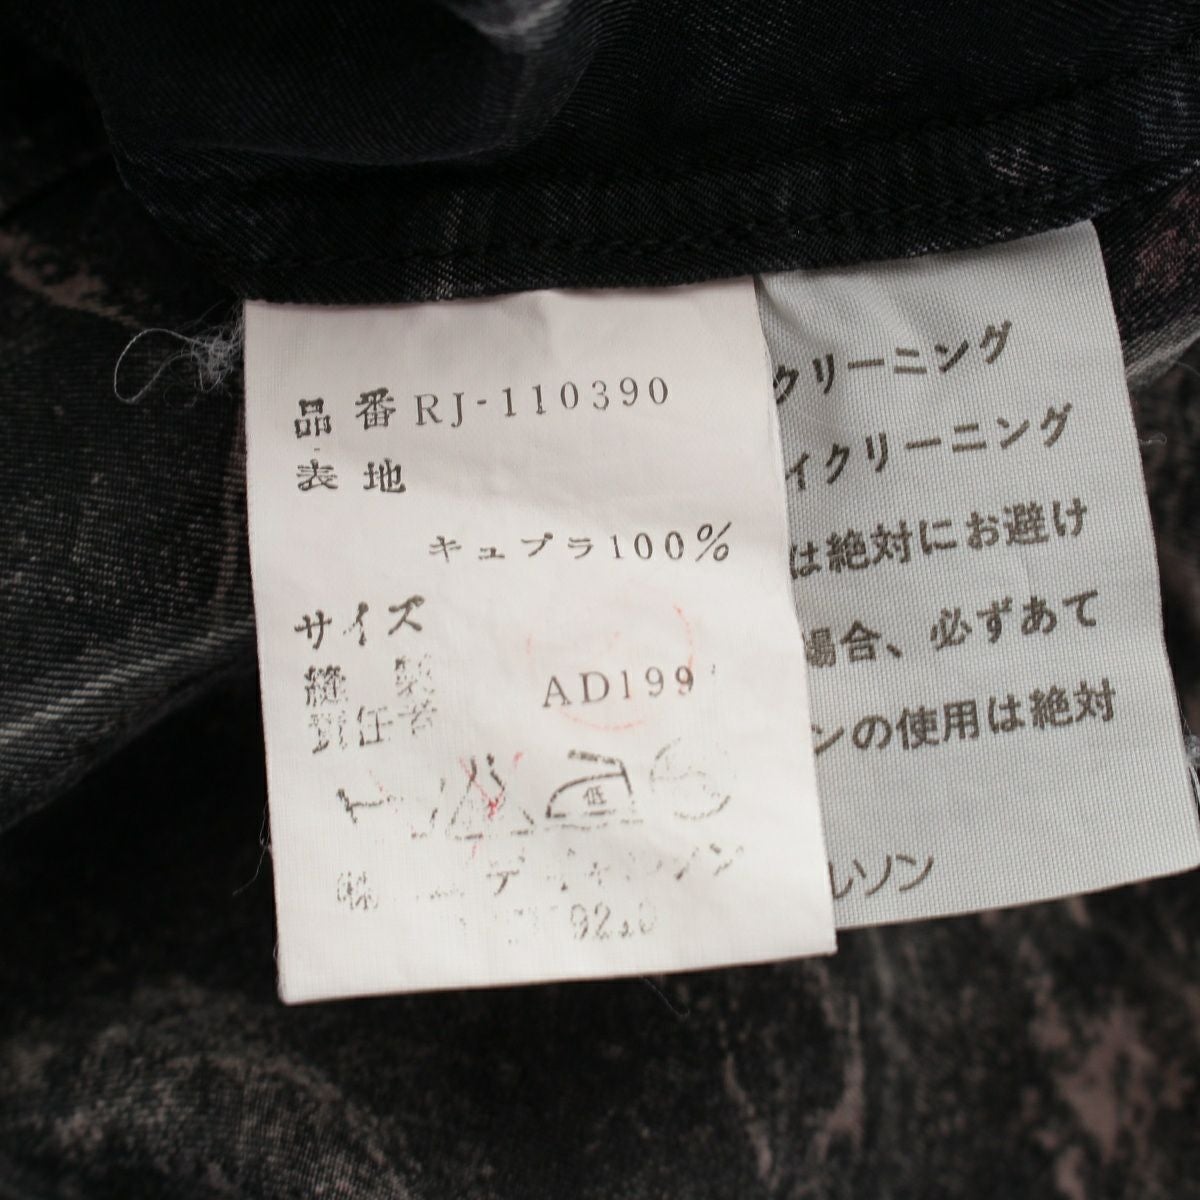 品番 RJ-110390
表地
キュプラ100%
サイズ
縫製
責任者
AD199
低
クリーニング
イクリーニング
は絶対にお避け
場合、必ずあて
ンの使用は絶対
ルソン